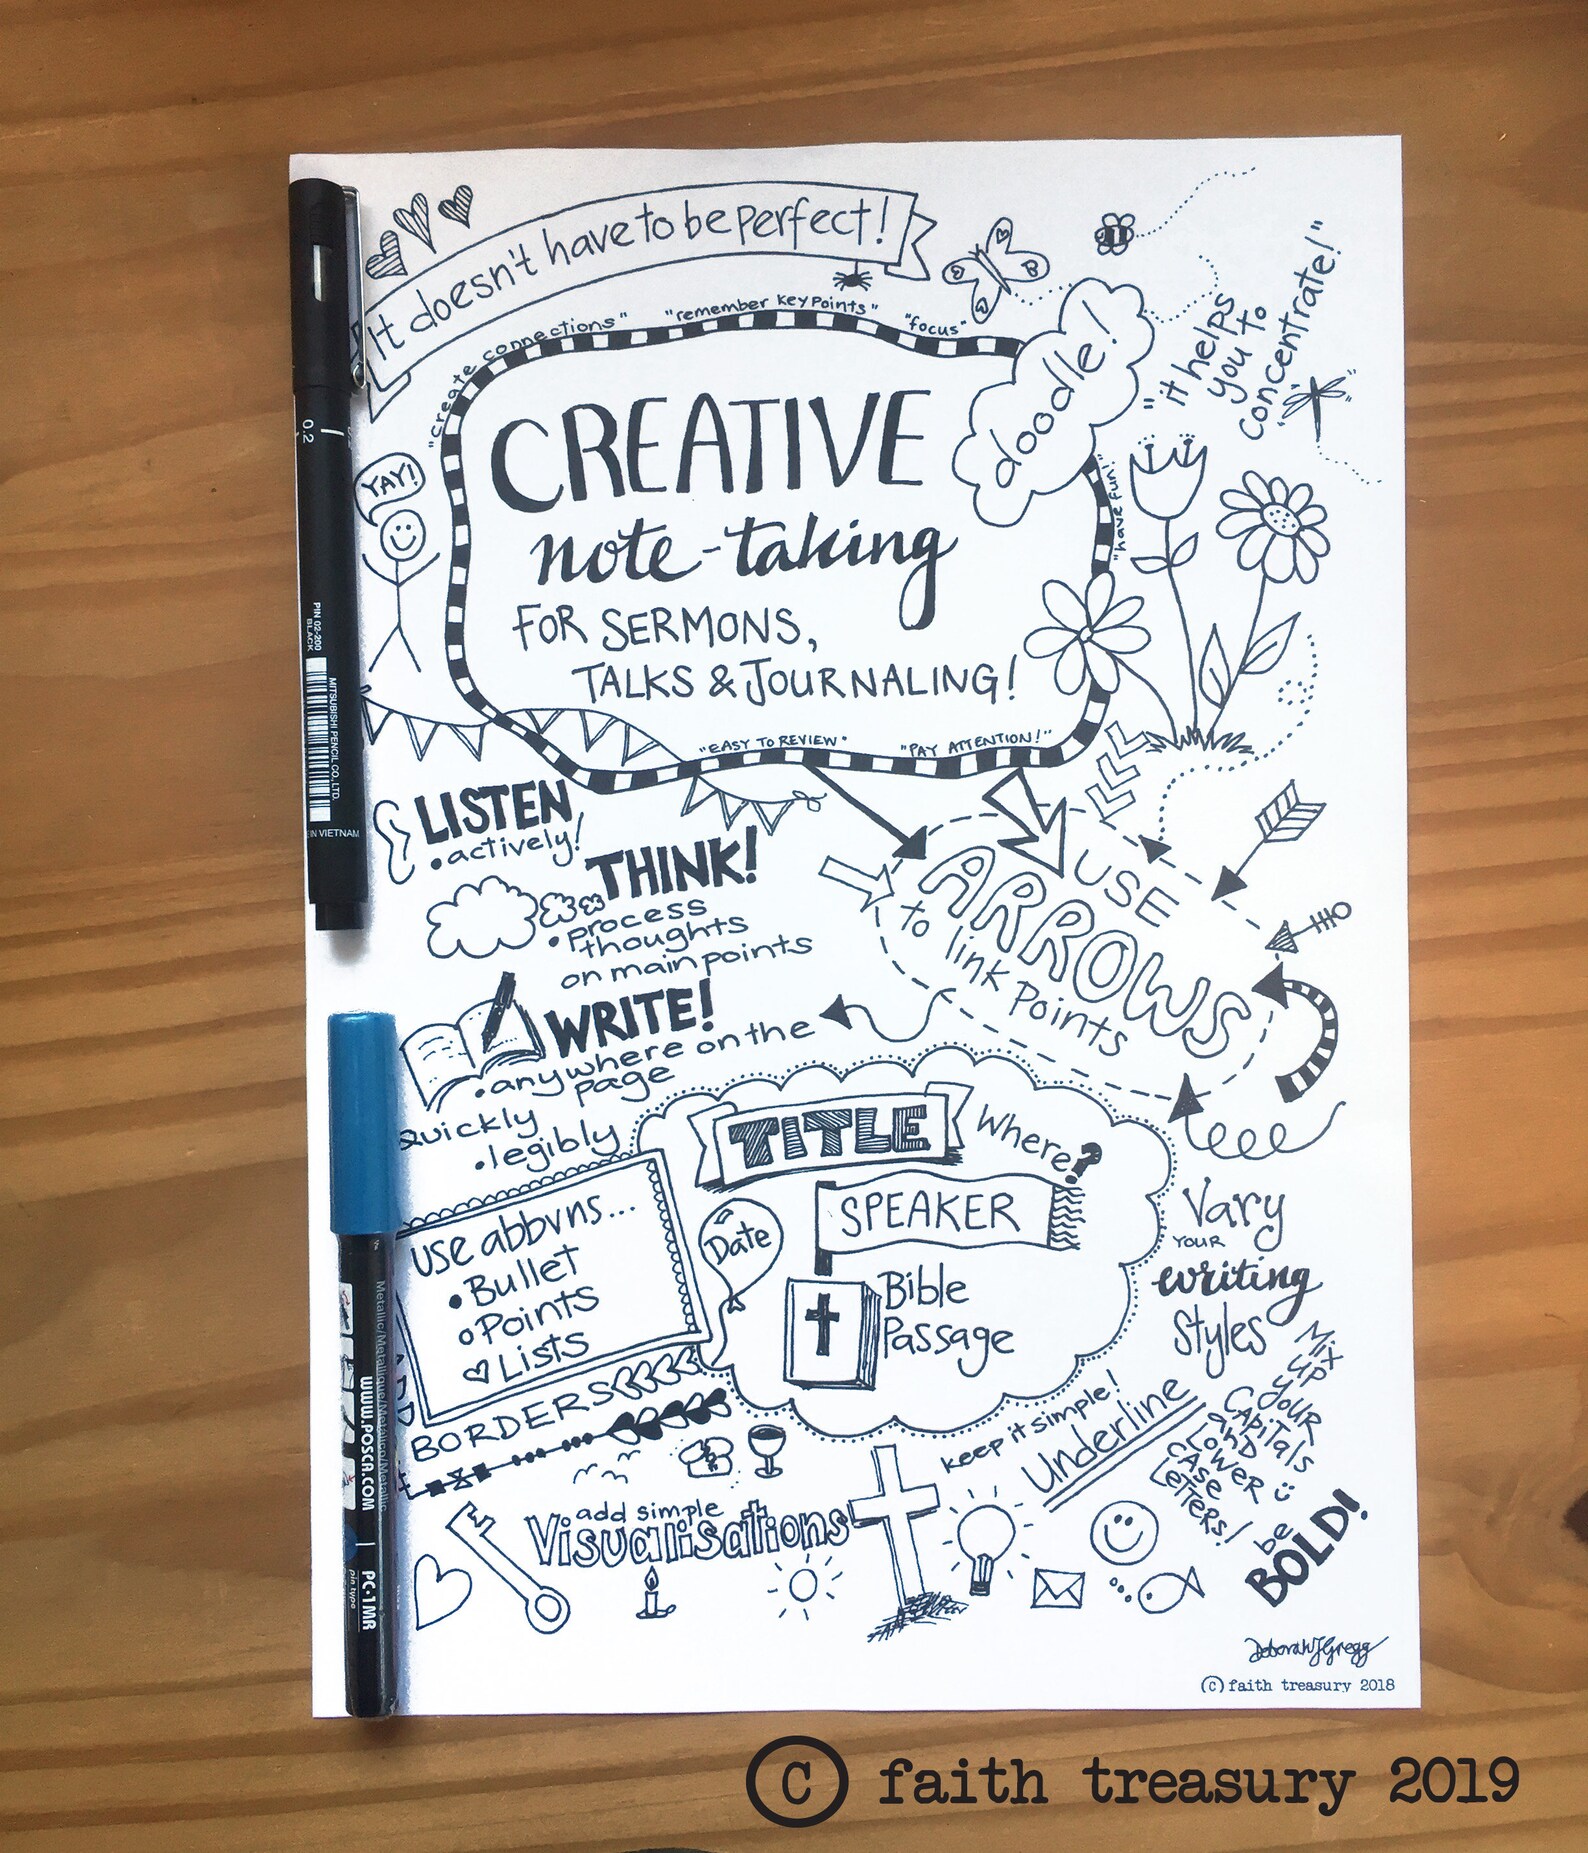 It doesn't have to be perfect!
"create connections"
"remember key points"
"focus"
doodle!
"it helps
you to
concentrate!"
YAY!
CREATIVE
note-taking
FOR SERMONS,
TALKS & JOURNALING!
"have fun!"
"EASY TO REVIEW"
"PAY ATTENTION!"
LISTEN
• actively!
THINK!
• process
thoughts
on main points
WRITE!
• anywhere on the
page
Quickly
• legibly
USE
ARROWS
to link points
TITLE
Where?
SPEAKER
Date
Bible
Passage
use abbvns...
• Bullet
o Points
♡ Lists
BORDERS
Vary
YOUR
writing
styles
Mix
up
your
CAPitals
and
LOWER
case
LETTERS!
be
BOLD!
keep it simple!
Underline
add simple
Visualisations
Deborah J Gregg
© faith treasury 2018
0.2
PIN 02-200
BLACK
MITSUBISHI PENCIL CO., LTD.
IN VIETNAM
Metallic/Metallique/Metallico/Metallic
WWW.POSCA.COM
PC-1MR
pin type
© faith treasury 2019